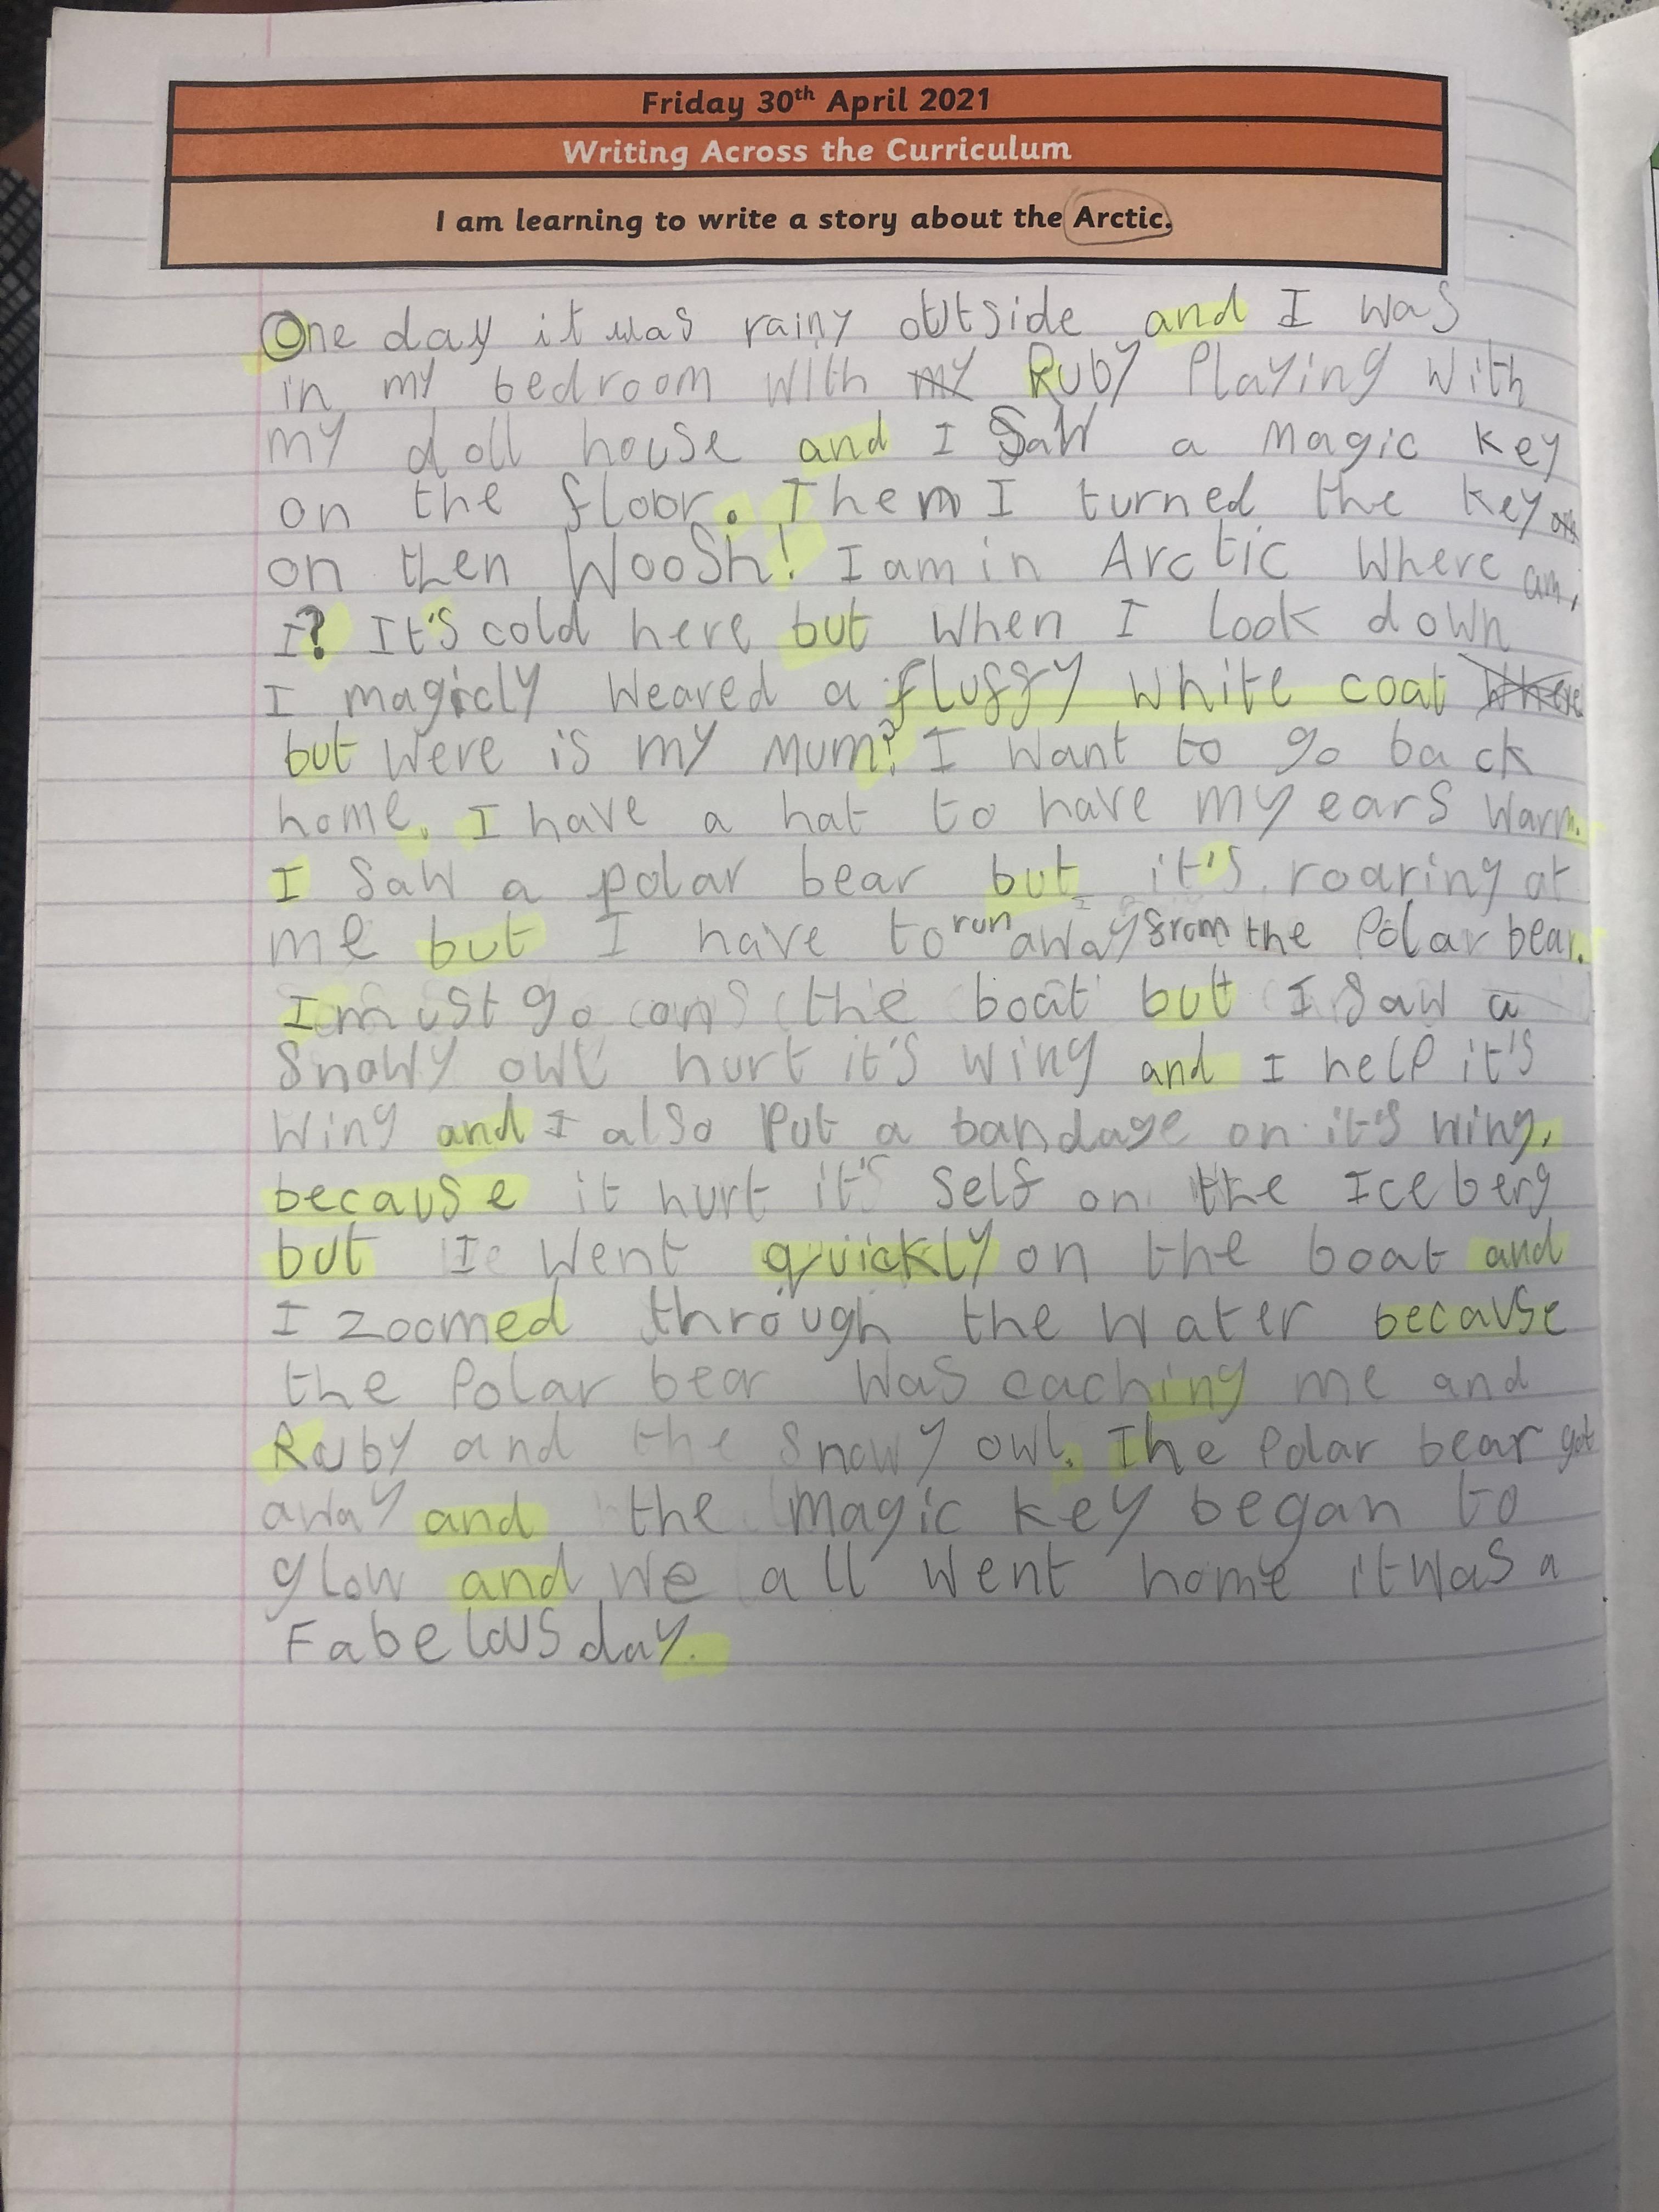 Friday 30th April 2021
Writing Across the Curriculum
I am learning to write a story about the Arctic.
One day it was rainy outside and I was
in my bedroom with my Ruby Playing with
my doll house and I Saw a magic key
on the floor. Then I turned the key
on then Woosh! I am in Arctic Where am
I? It's cold here but when I look down
I magicly Weared a fluffy white coat Where
but were is my mum? I want to go back
home. I have a hat to have my ears warm.
I Saw a polar bear but it's roaring at
me but I have to run away from the Polar bear.
I must go on the boat but I Saw a
Snowy owl hurt it's wing and I help it's
wing and I also Put a bandage on it's wing,
because it hurt it's Self on the Iceberg
but I went quickly on the boat and
I zoomed through the water because
the Polar bear was caching me and
Ruby and the Snowy owl. The Polar bear got
away and the magic key began to
glow and we all went home it was a
Fabelous day.